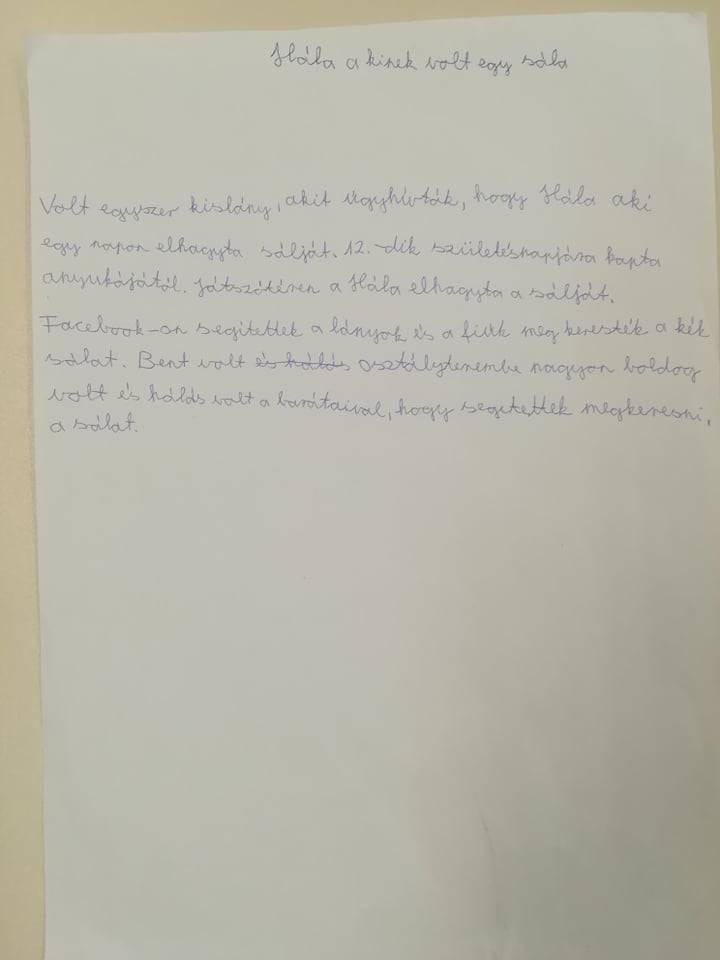 Hála a kinek volt egy sála
Volt egyszer kislány, akit úgyhívták, hogy Hála aki
egy napon elhagyta sálját. 12.-dik születésnapjára kapta
anyukájától. Játszótéren a Hála elhagyta a sálját.
Facebook-on segitettek a lányok és a fiúk meg keresték a kék
sálat. Bent volt és hálás osztályterembe nagyon boldog
volt és hálás volt a barátaival, hogy segitettek megkeresni,
a sálat.